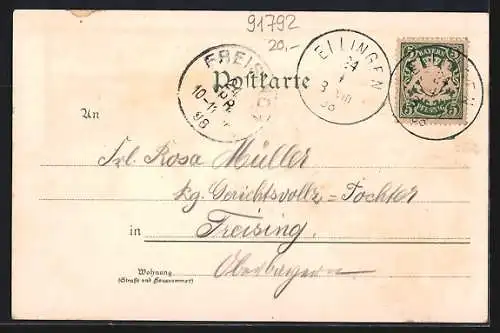 91792
20,-
FREISING
24
APR
10-11
98
Postkarte
ELLINGEN
24
98
BAYERN
5 5
PFENNIG
ELLINGEN
An
Frl. Rosa Müller
kg. Gerichtsvollz=Tochter
in Freising.
Oberbayern
Wohnung
(Straße und Hausnummer)